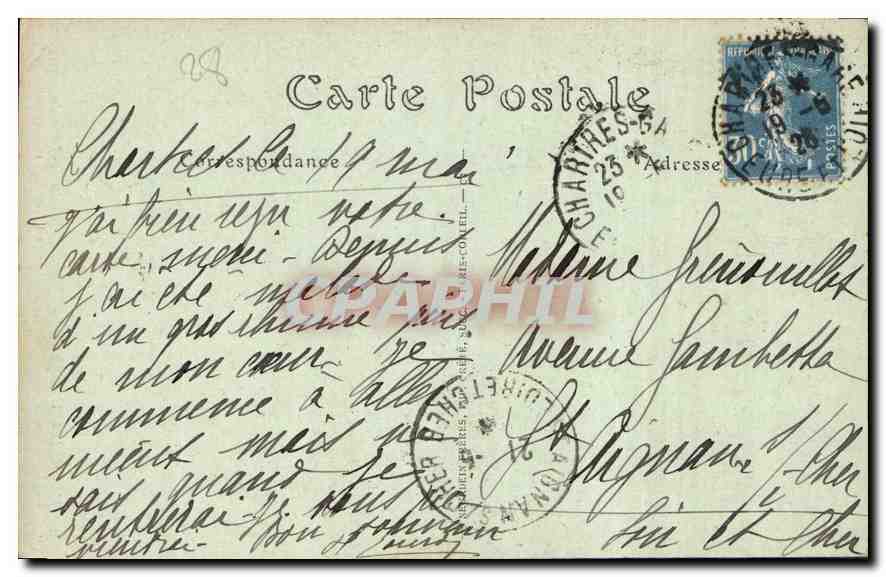 28
Carte Postale
Correspondance
Adresse
Chartres le 19 mai
j'ai bien reçu votre
carte, merci - Depuis
j'ai été malade
d'un gros rhume puis
de mon cœur - je
commence à aller
mieux mais ne
sais quand je
rentrerai - je vous
Bon souvenir
Madame Grenouillot
Avenue Gambetta
St Aignan s/ Cher
Loir et Cher
CHARTRES-GARE
23 *
19
E
REPUBLIQUE FRANÇAISE
30c
POSTES
CHARTRES-GARE
23 *
19 -5
23
EURE
ST AIGNAN S CHER
21
LOIR ET CHER
CPAPHIL